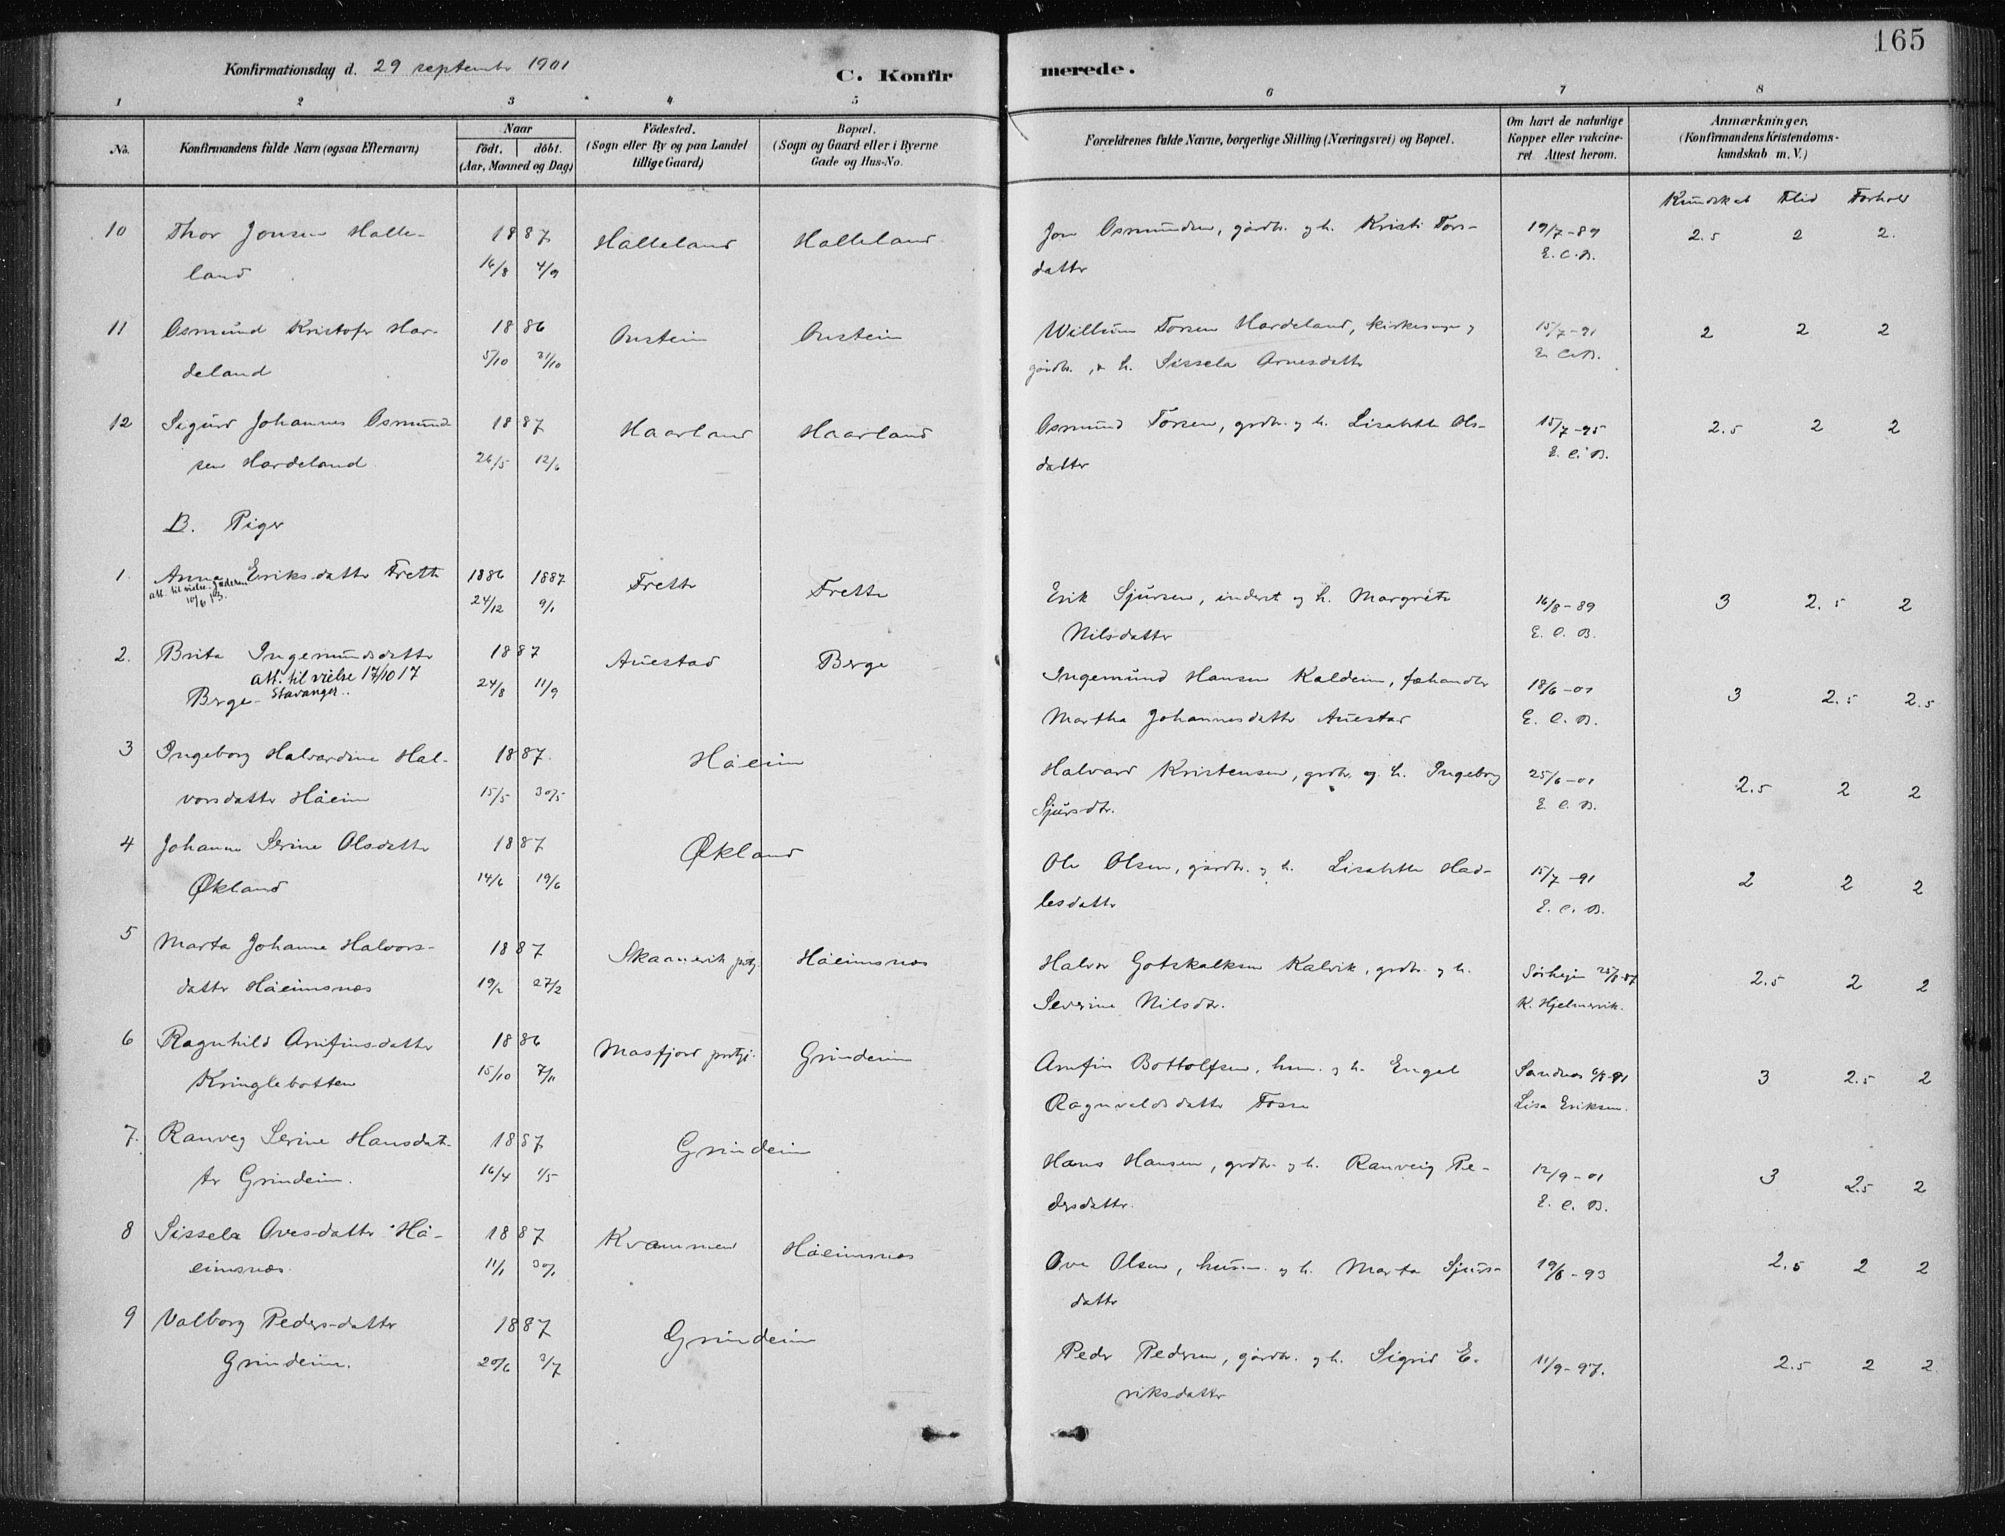 165
Konfirmationsdag d. 29 september 1901
C. Konfirmerede.
1 2 3 4 5 6 7 8
No.
Konfirmandens fulde Navn (ogsaa Efternavn)
Naar
født. døbt.
(Aar, Maaned og Dag)
Fødested.
(Sogn eller By og paa Landet
tillige Gaard)
Bopæl.
(Sogn og Gaard eller i Byerne
Gade og Hus-No.
Forældrenes fulde Navne, borgerlige Stilling (Næringsvei) og Bopæl.
Om havt de naturlige
Kopper eller vakcine-
ret Attest herom.
Anmærkninger,
(Konfirmandens Kristendoms-
kundskab m. V.)
Kundskab Flid Forhold
10 Thor Jonsen Halle- 1887 Halleland Halleland Jon Osmundsen, gårdbr. og h. Kristi Tors- 19/7-89 2.5 2 2.
land 16/8 4/9 datter E. C. B.
11 Osmund Kristofer Har- 1886 Onstein Onstein Willum Torsen Hardeland, kirkesanger 15/7-91 2 2 2
deland 5/10 31/10 gårdbr., & h. Sissela Arnesdatter E. C. B.
12 Sigurd Johannes Osmund 1887 Haarland Haarland Osmund Torsen, grdbr. og h. Lisabeth Ols- 15/7-95 2.5 2 2
sen Hardeland 26/5 12/6 datter E. C. B.
B. Piger
1. Anna Eriksdatter Frette 1886 1887 Frette Frette Erik Sjursen, inderst og h. Margrete 16/8-89 3 2.5 2
att. til vielse Jæderen
10/6 13. 24/12 9/1 Nilsdatter E. C. B.
2. Brita Ingemundsdatter 1887 Auestad Berge Ingemund Hansen Kaldeim, fæhandler 18/6-01 3 2.5 2.5
att. til vielse 17/10 17
Berge Stavanger. 24/8 11/9 Martha Johannesdatter Auestad E. C. B.
3 Ingeborg Halvardine Hal- 1887. Håeim Halvard Kristensen, grdbr. og h. Ingeborg 25/6-01 2.5 2 2
vorsdatter Håeim 15/5 30/5 Sjursdtr. E. C. B.
4 Johanne Serine Olsdatter 1887 Økland Ole Olsen, gårdbr. og h. Lisabeth Had- 15/7-91 2 2 2
Økland 14/6 19/6 lesdatter E. C. B.
5 Marta Johanne Halvors- 1887 Skaanevik prstgj. Håeimsnæs Halvor Gotskalksen Kalvik, grdbr. og h. Sørhein 25/8-87 2.5 2 2
datter Håeimsnæs 19/2 27/2 Severine Nilsdtr. K. Hjelmervik.
6 Ragnhild Arnfinsdatter 1886 Masfjord prstgj. Grindeim Arnfin Bottolfsen, husm. og h. Engel Sandnes 6/8-91 3 2.5 2
Kringlebotten 15/10 7/11 Ragnvaldsdatter Fosse Lisa Eriksen.
7. Ranveg Serine Hansdat- 1887 Grindeim Hans Hansen, grdbr. og h. Ranveig Pe- 12/9-01 3 2.5 2
ter Grindeim. 16/4 1/5 dersdatter. E. C. B.
8 Sissela Ovesdatter Hå- 1887 Kvammen Håeimsnæs Ove Olsen, husm. og h. Marta Sjurs- 19/8-93 2.5 2 2
eimsnæs. 11/1 30/1 datter
9 Valborg Pedersdatter 1887 Grindeim Peder Pedersen, gårdbr. og h. Sigrid E- 11/9-97. 2.5 2 2
Grindeim. 20/6 3/7 riksdatter